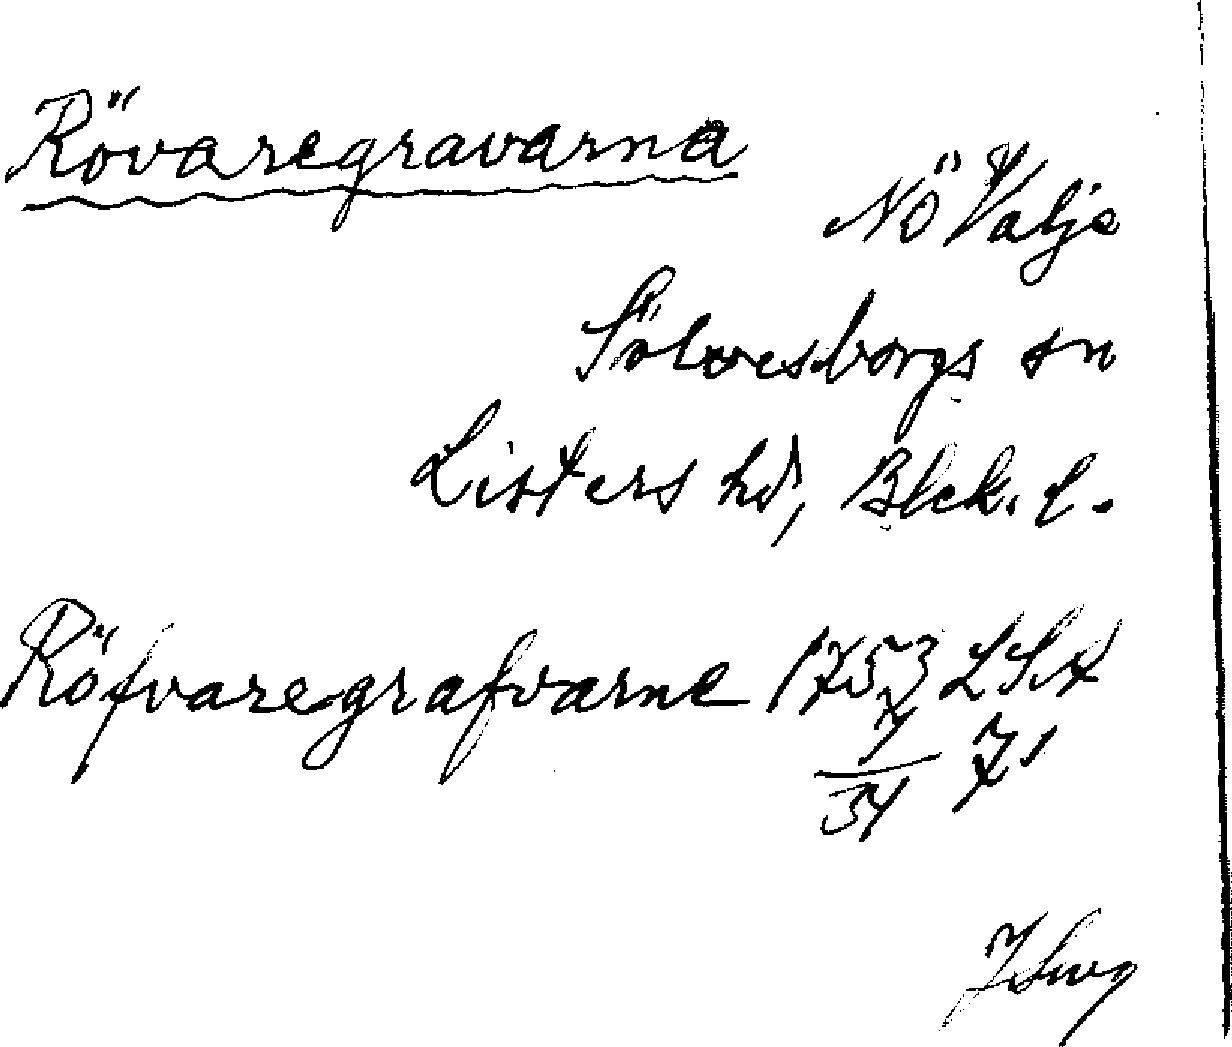 Rövaregravarna
Nö Valje
Sölvesborgs sn
Listers hd, Blek. l.
Röfvaregrafvarne 1753 LSA
7/34 71